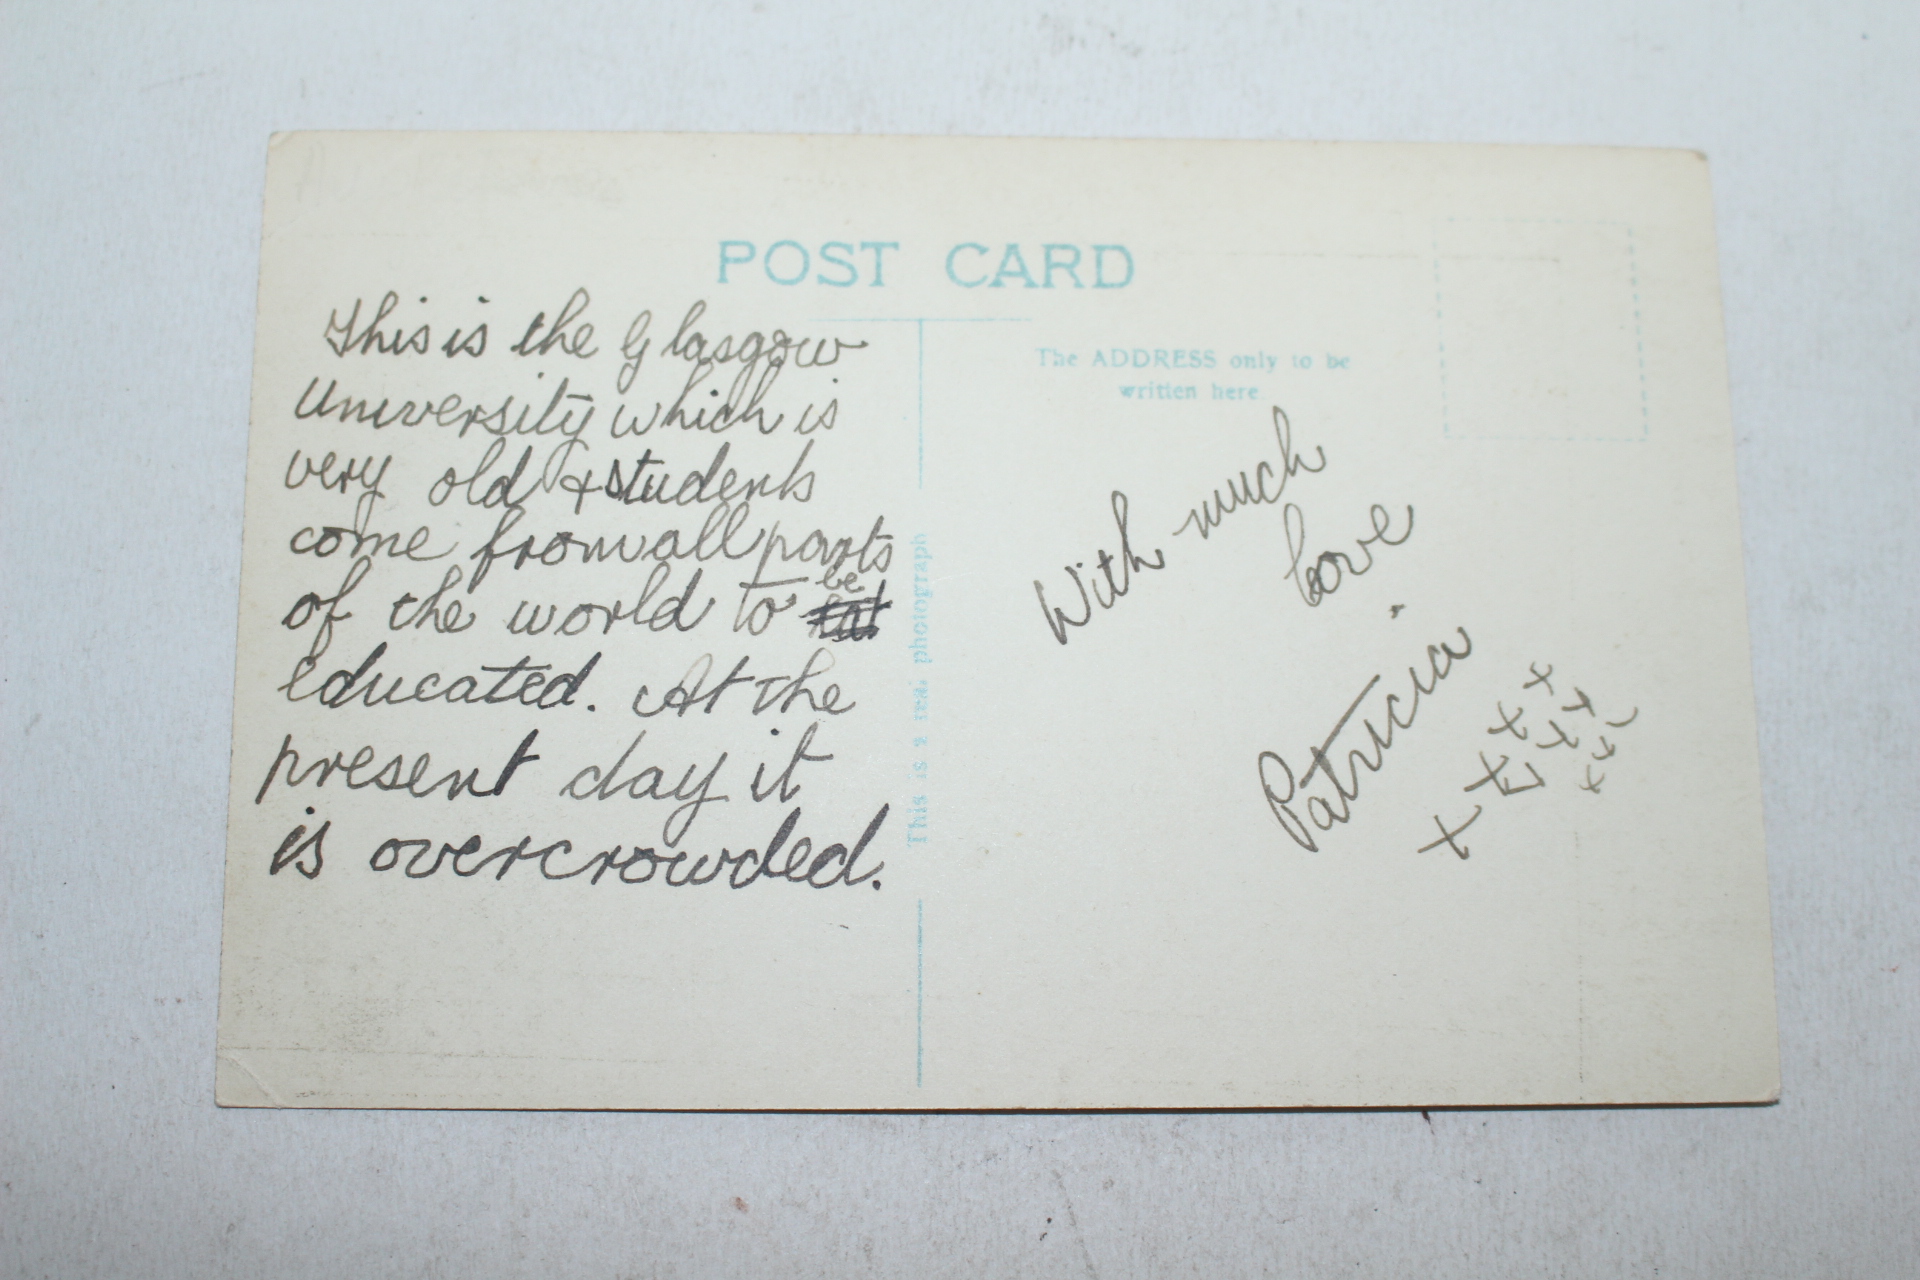 POST CARD
This is the Glasgow
University which is
very old + students
come from all parts
of the world to be
educated. At the
present day it
is overcrowded.
This is a real photograph
The ADDRESS only to be
written here
With much
love
Patricia
x x
x x x
x x x
x